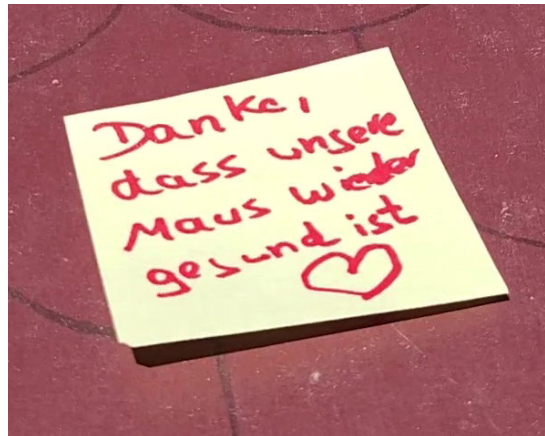 Danke,
dass unsere
Maus wieder
gesund ist